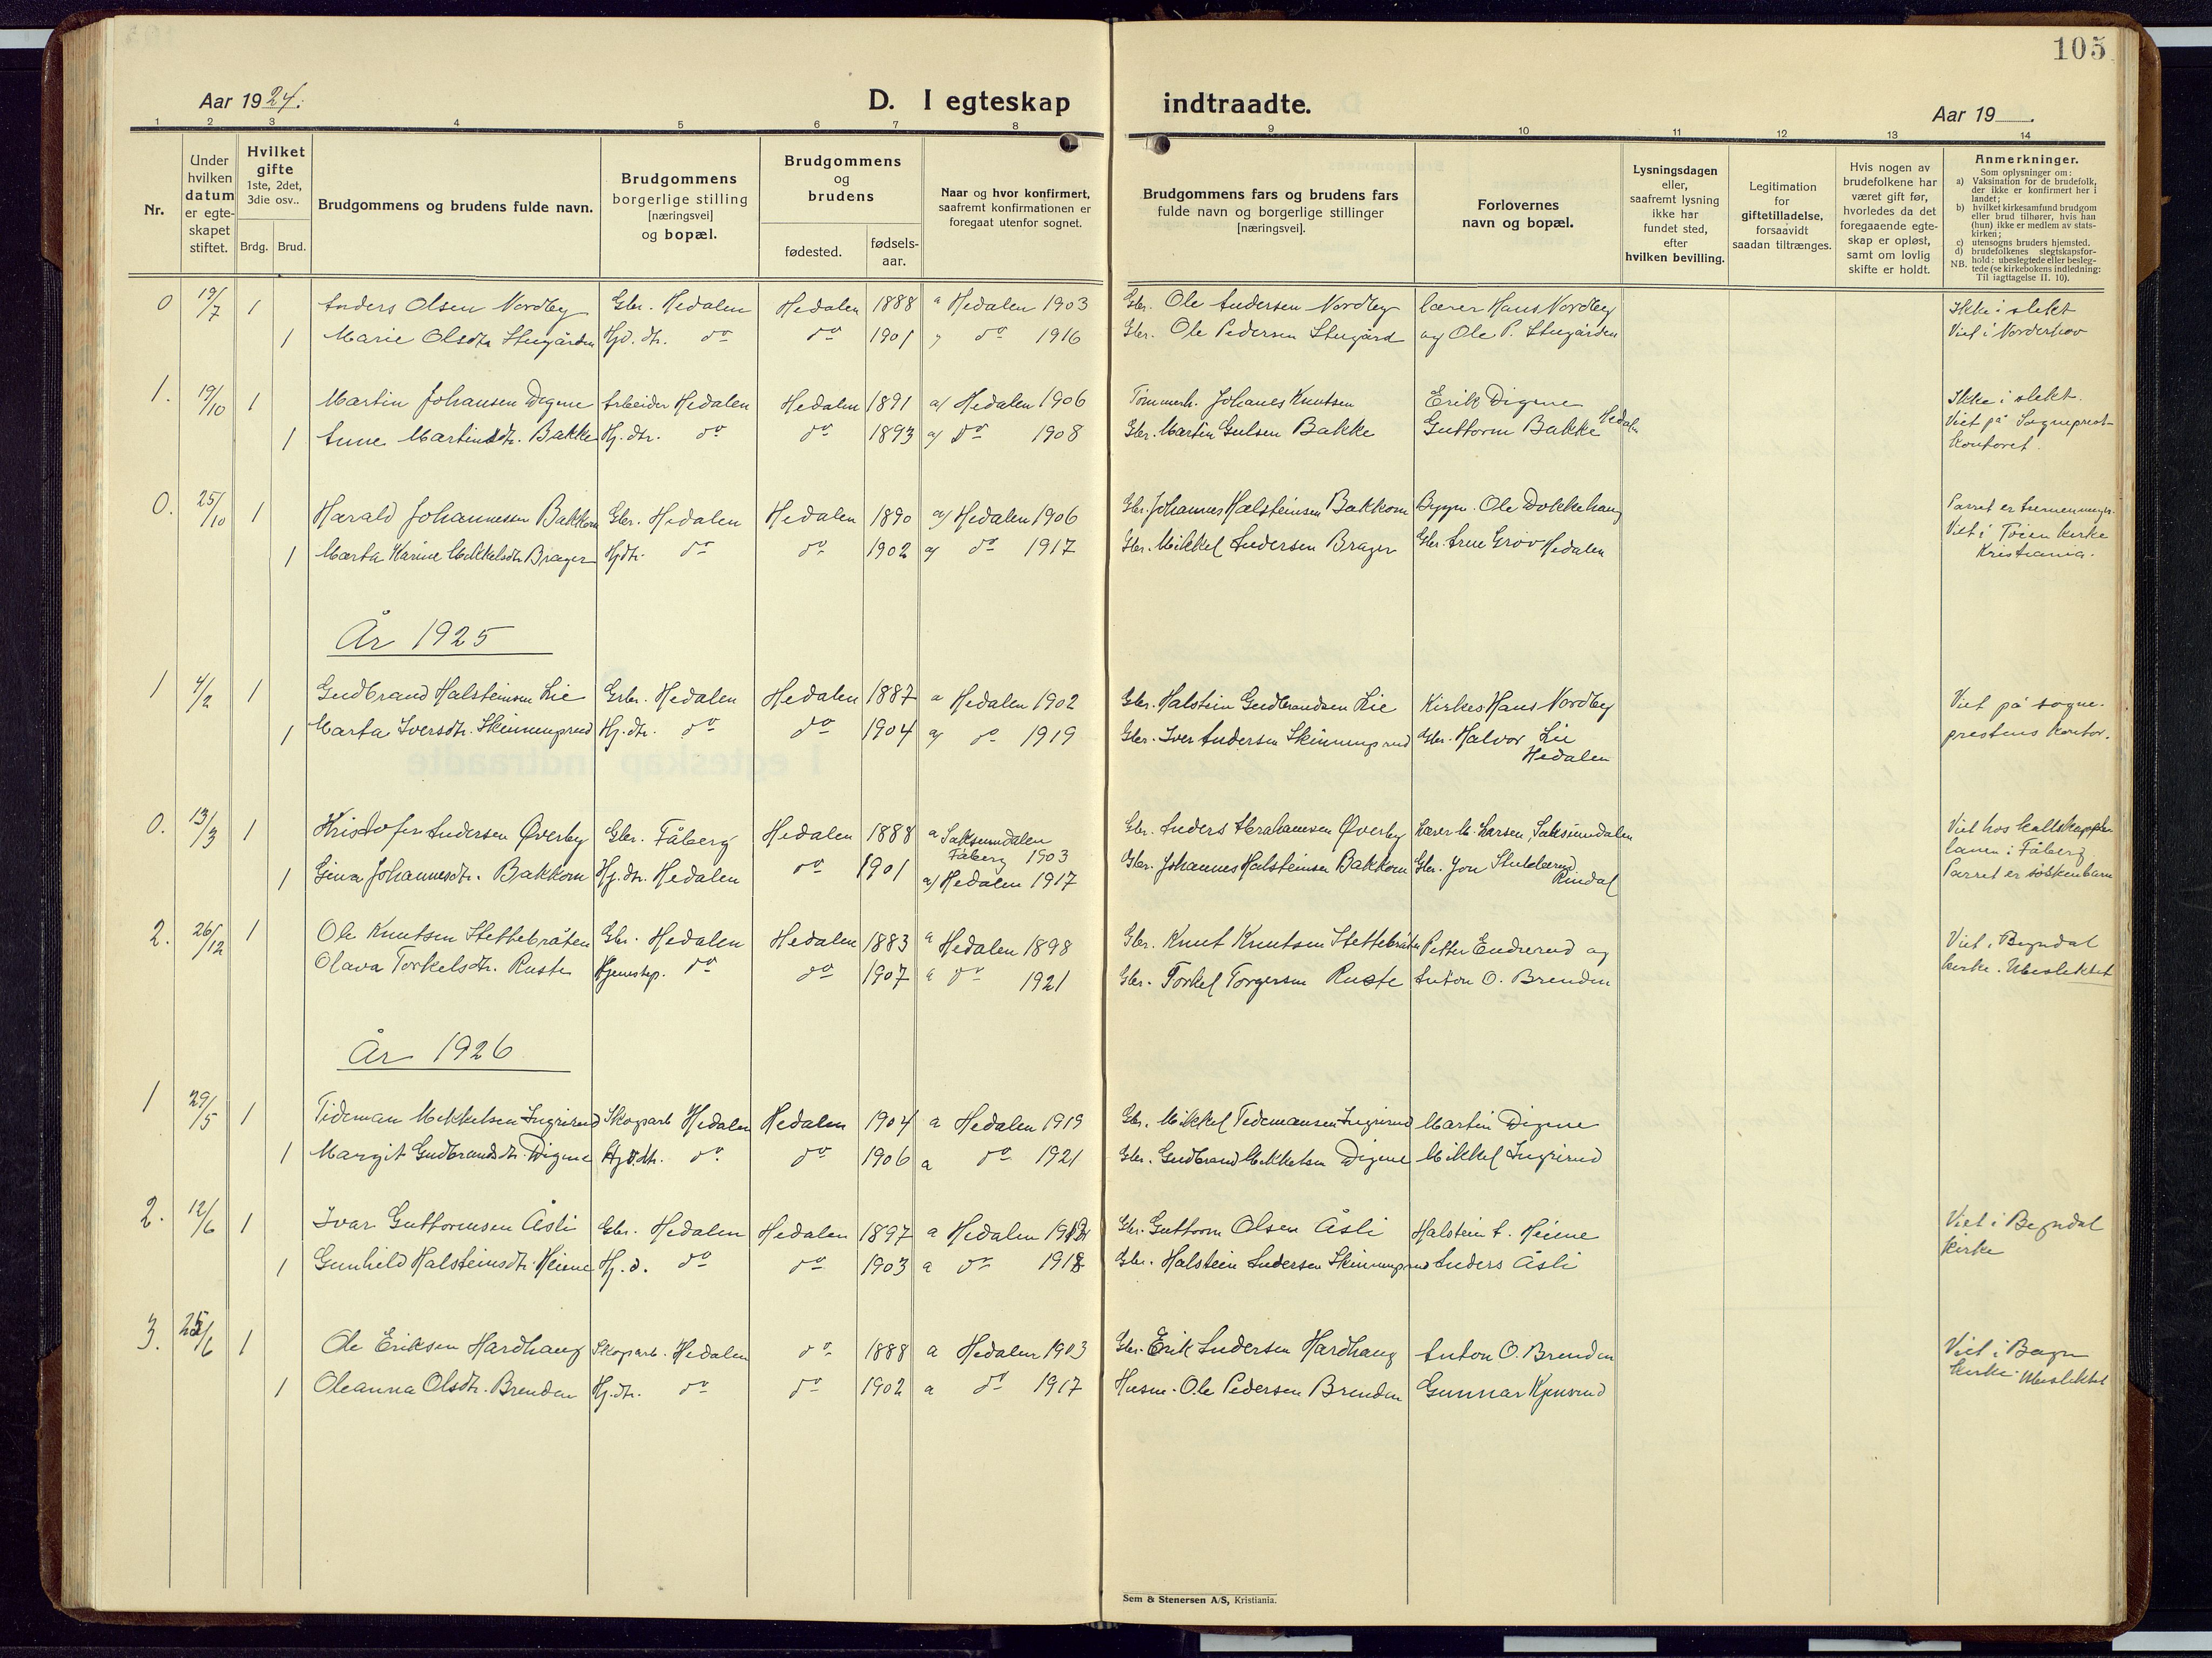 105
Aar 1924.
D. I egteskap indtraadte.
Aar 19
1 2 3 4 5 6 7 8 9 10 11 12 13 14
Nr.
Under hvilken datum er egteskapet stiftet.
Hvilket gifte 1ste, 2det, 3die osv..
Brdg. Brud.
Brudgommens og brudens fulde navn.
Brudgommens borgerlige stilling [næringsvei] og bopæl.
Brudgommens og brudens
fødested.
fødsels-aar.
Naar og hvor konfirmert, saafremt konfirmationen er foregaat utenfor sognet.
Brudgommens fars og brudens fars fulde navn og borgerlige stillinger [næringsvei].
Forlovernes navn og bopæl.
Lysningsdagen eller, saafremt lysning ikke har fundet sted, efter hvilken bevilling.
Legitimation for giftetilladelse, forsaavidt saadan tiltrænges.
Hvis nogen av brudefolkene har været gift før, hvorledes da det foregaaende egteskap er opløst, samt om lovlig skifte er holdt.
Anmerkninger.
Som oplysninger om:
a) Vaksination for de brudefolk, der ikke er konfirmert her i landet;
b) hvilket kirkesamfund brudgom eller brud tilhører, hvis han (hun) ikke er medlem av statskirken;
c) utensogns bruders hjemsted.
d) brudefolkenes slegtskapsforhold: ubeslegtede eller beslegtede (se kirkebokens indledning:
NB. Til iagttagelse II. 10).
0 19/7 1 Anders Olsen Nordby Gbr. Hedalen Hedalen 1888 a Hedalen 1903 Gbr. Ole Andersen Nordby lærer Hans Nordby Ikke i slekt
1 Marie Olsdtr Stugården Hjd. dtr. do do 1901 do 1916 Gbr. Ole Pedersen Stugård og Ole P. Stugården Viet i Norderhov
1. 19/10 1 Martin Johansen Digme Arbeider Hedalen Hedalen 1891 a/ Hedalen 1906 Tømmerh. Johanes Knutsen Erik Digme Ikke i slekt.
1 Anne Martinsdtr. Bakke Hj. dtr. do do 1893 a/ do 1908 Gbr. Martin Gulsen Bakke Guttorm Bakke Hedalen Viet på Sogneprest-
kontoret.
0. 25/10 1 Harald Johannessen Bakkom Gbr. Hedalen Hedalen 1890 a/ Hedalen 1906 Gbr. Johannes Halsteinsen Bakkom Bygm. Ole Dokkehaug Parret er tremenninger.
1 Marta Karine Mikkelsdtr Brager Hjdtr. do do 1902 a/ do 1917 Gbr. Mikkel Andersen Brager Gbr. Arne Grov Hedalen Viet i Tøien kirke
Kristiania.
År 1925
1 4/2 1 Gudbrand Halsteinsen Lie Gbr. Hedalen Hedalen 1887 a Hedalen 1902 Gbr. Halstein Gudbrandsen Lie Kirkes Hans Nordby Viet på sogne-
1 Marta Iversdtr. Skinningsrud Hj. dtr. do do 1904 a/ do 1919 Gbr. Iver Andersen Skinningsrud Gbr. Halvor Lie prestens kontor.
Hedalen
0. 13/3 1 Kristofer Andersen Øverby Gbr. Fåberg Hedalen 1888 a Saksumdalen Fåberg 1903 Gbr. Anders Abrahamsen Øverby Lærer M. Larsen, Saksumdalen Viet hos kallskappe-
lanen i Fåberg
1 Gina Johannesdtr. Bakkom Hj. dtr. Hedalen do 1901 a/ Hedalen 1917 Gbr. Johannes Halsteinsen Bakkom Gbr. Jon Stubberud Rindal Parret er søskenbarn
2. 26/12 1 Ole Knutsen Stettebråten Gbr. Hedalen Hedalen 1883 a Hedalen 1898 Gbr. Knut Knutsen Stettebråten Petter Endrerud og Viet i Begndal
Olava Torkelsdtr. Ruste Hjemshp. do do 1907 a do 1921 Gbr. Torkel Torgersen Ruste Anton O. Brenden kirke. Ubeslektet
År 1926
1 29/5 1 Tideman Mikkelsen Ingrirud Skogarb Hedalen Hedalen 1904 a Hedalen 1919 Gbr. Mikkel Tidemansen Ingrirud Martin Digme
1 Margit Gudbrandsdtr. Digme Hjd. dtr. do do 1906 a do 1921 Gbr. Gudbrand Mikkelsen Digme Mikkel Ingrirud
2. 12/6 1 Ivar Guttormsen Åsli Gbr. Hedalen Hedalen 1897 a Hedalen 1912 Gbr. Guttorm Olsen Åsli Halstein A. Heime Viet i Begndal
1 Gunhild Halsteinsdtr. Heime Hj. d. do do 1903 a do 1918 Gbr. Halstein Andersen Skinningsrud Anders Åsli kirke
3. 25/6 1 Ole Eriksen Hardhaug Skogarb. Hedalen do 1888 a Hedalen 1903 Gbr. Erik Andersen Hardhaug Anton O. Brenden Viet i Bagn
1 Oleanna Olsdtr. Brenden Hj. dtr. do do 1902 a do 1917 Husm. Ole Pedersen Brenden Gunnar kirke. Ubeslektet
Sem & Stenersen A/S, Kristiania.